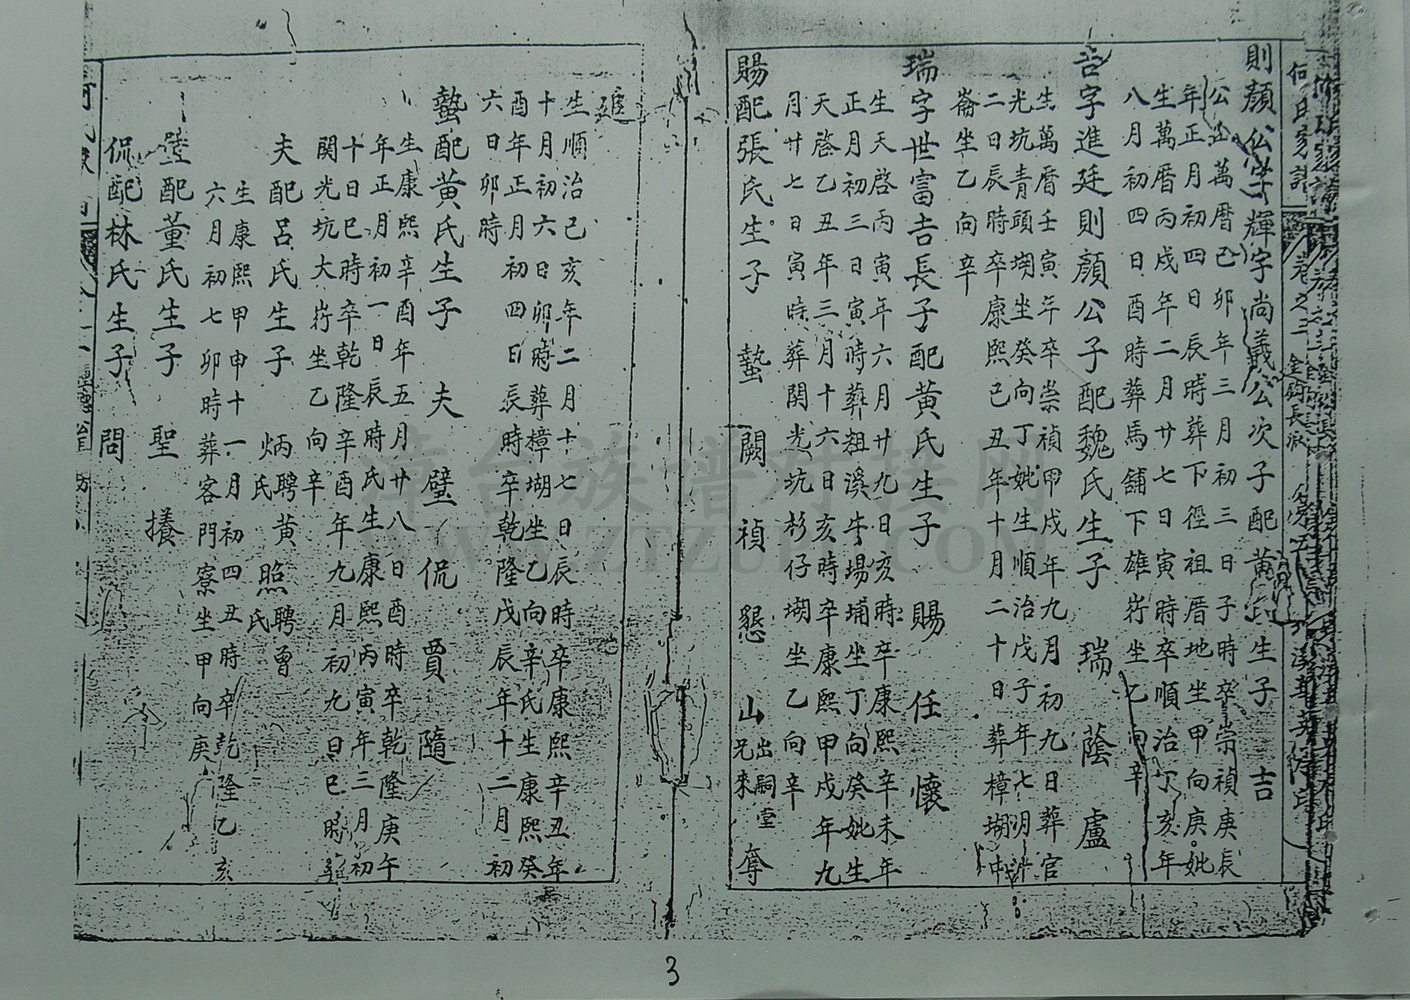 何氏家譜 卷之二
則顏公字輝字尚義公次子配黃氏生子 吉
公生萬曆己卯年三月初三日子時卒崇禎庚辰
年正月初四日辰時葬下徑祖厝地坐甲向庚妣
生萬曆丙戌年二月廿七日寅時卒順治丁亥年
八月初四日酉時葬馬舖下雄崎坐乙向辛
吉字進廷則顏公子配魏氏生子 瑞 蔭 盧
生萬曆壬寅年卒崇禎甲戌年九月初九日葬官
光坑青頭堋坐癸向丁妣生順治戊子年七月
二日辰時卒康熙己丑年十月二十日葬樟堋中
崙坐乙向辛
瑞字世富吉長子配黃氏生子 賜 任 懷
生天啓丙寅年六月廿九日亥時卒康熙辛未年
正月初三日寅時葬粗溪牛場埔坐丁向癸妣生
天啓乙丑年三月十六日亥時卒康熙甲戌年九
月廿七日寅時葬関光坑杉仔堋坐乙向辛
賜配張氏生子 蟄 闕 禎 懇 山出嗣堂兄來 奪
進
生順治己亥年二月十七日辰時卒康熙辛丑年
十月初六日卯時葬樟堋坐乙向辛氏生康熙癸
酉年正月初四日辰時卒乾隆戊辰年十二月初
六日卯時
蟄配黃氏生子 夫 璧 侃 賈 隨
生康熙辛酉年五月廿八日酉時卒乾隆庚午
年正月初一日辰時氏生康熙丙寅年三月初
十日巳時卒乾隆辛酉年九月初九日巳時
関光坑大崎坐乙向辛
夫配呂氏生子 炳聘黃氏 照聘曾氏
生康熙甲申十一月初四丑時卒乾隆乙亥
六月初七卯時葬客門寮坐甲向庚
璧配董氏生子 聖 攁
侃配林氏生子 問
3